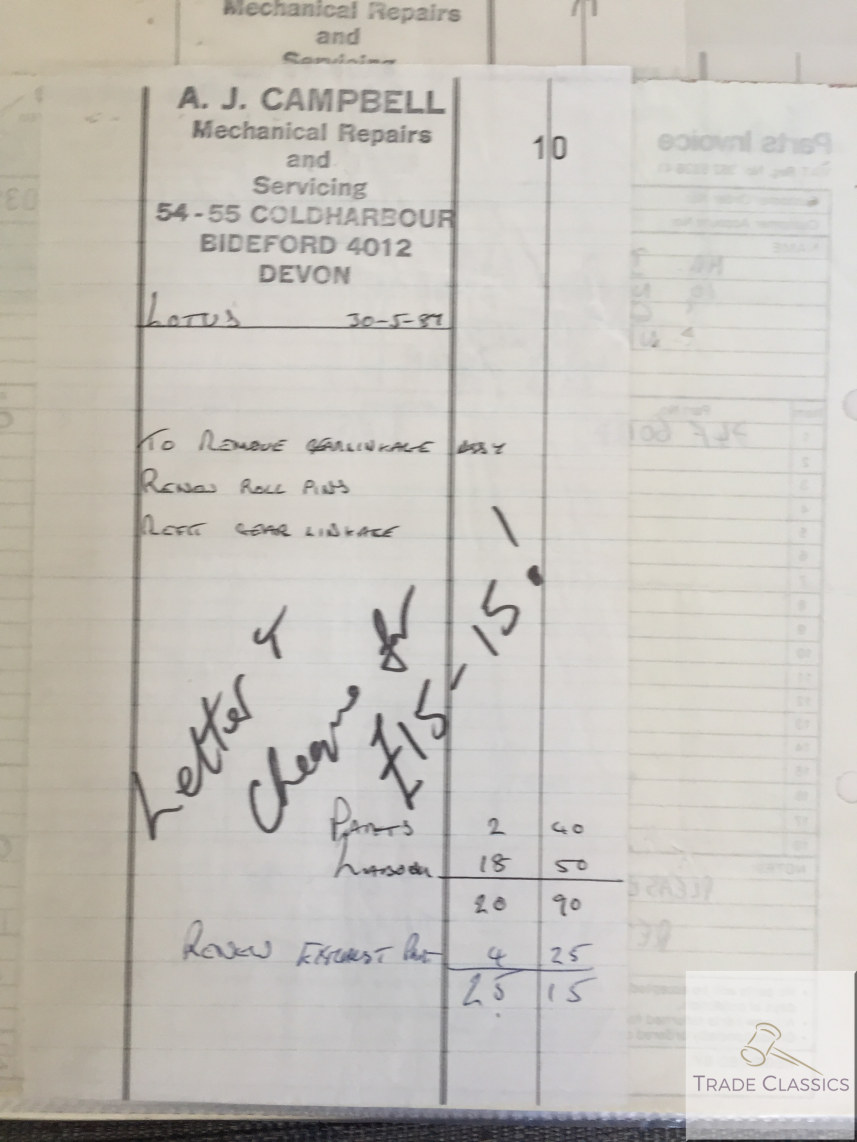 Mechanical Repairs
and
Servicing
A. J. CAMPBELL
Mechanical Repairs
and
Servicing
54-55 COLDHARBOUR
BIDEFORD 4012
DEVON
10
LOTUS 30-5-87
TO REMOVE GEARLINKAGE ASSY
RENEW ROLL PINS
REFIT GEAR LINKAGE
Letter &
cheque for
£15-15!
PARTS 2 40
LABOUR 18 50
20 90
RENEW EXHAUST 4 25
25 15
Parts Invoice
NAME
NOTES
PLEASE
TRADE CLASSICS